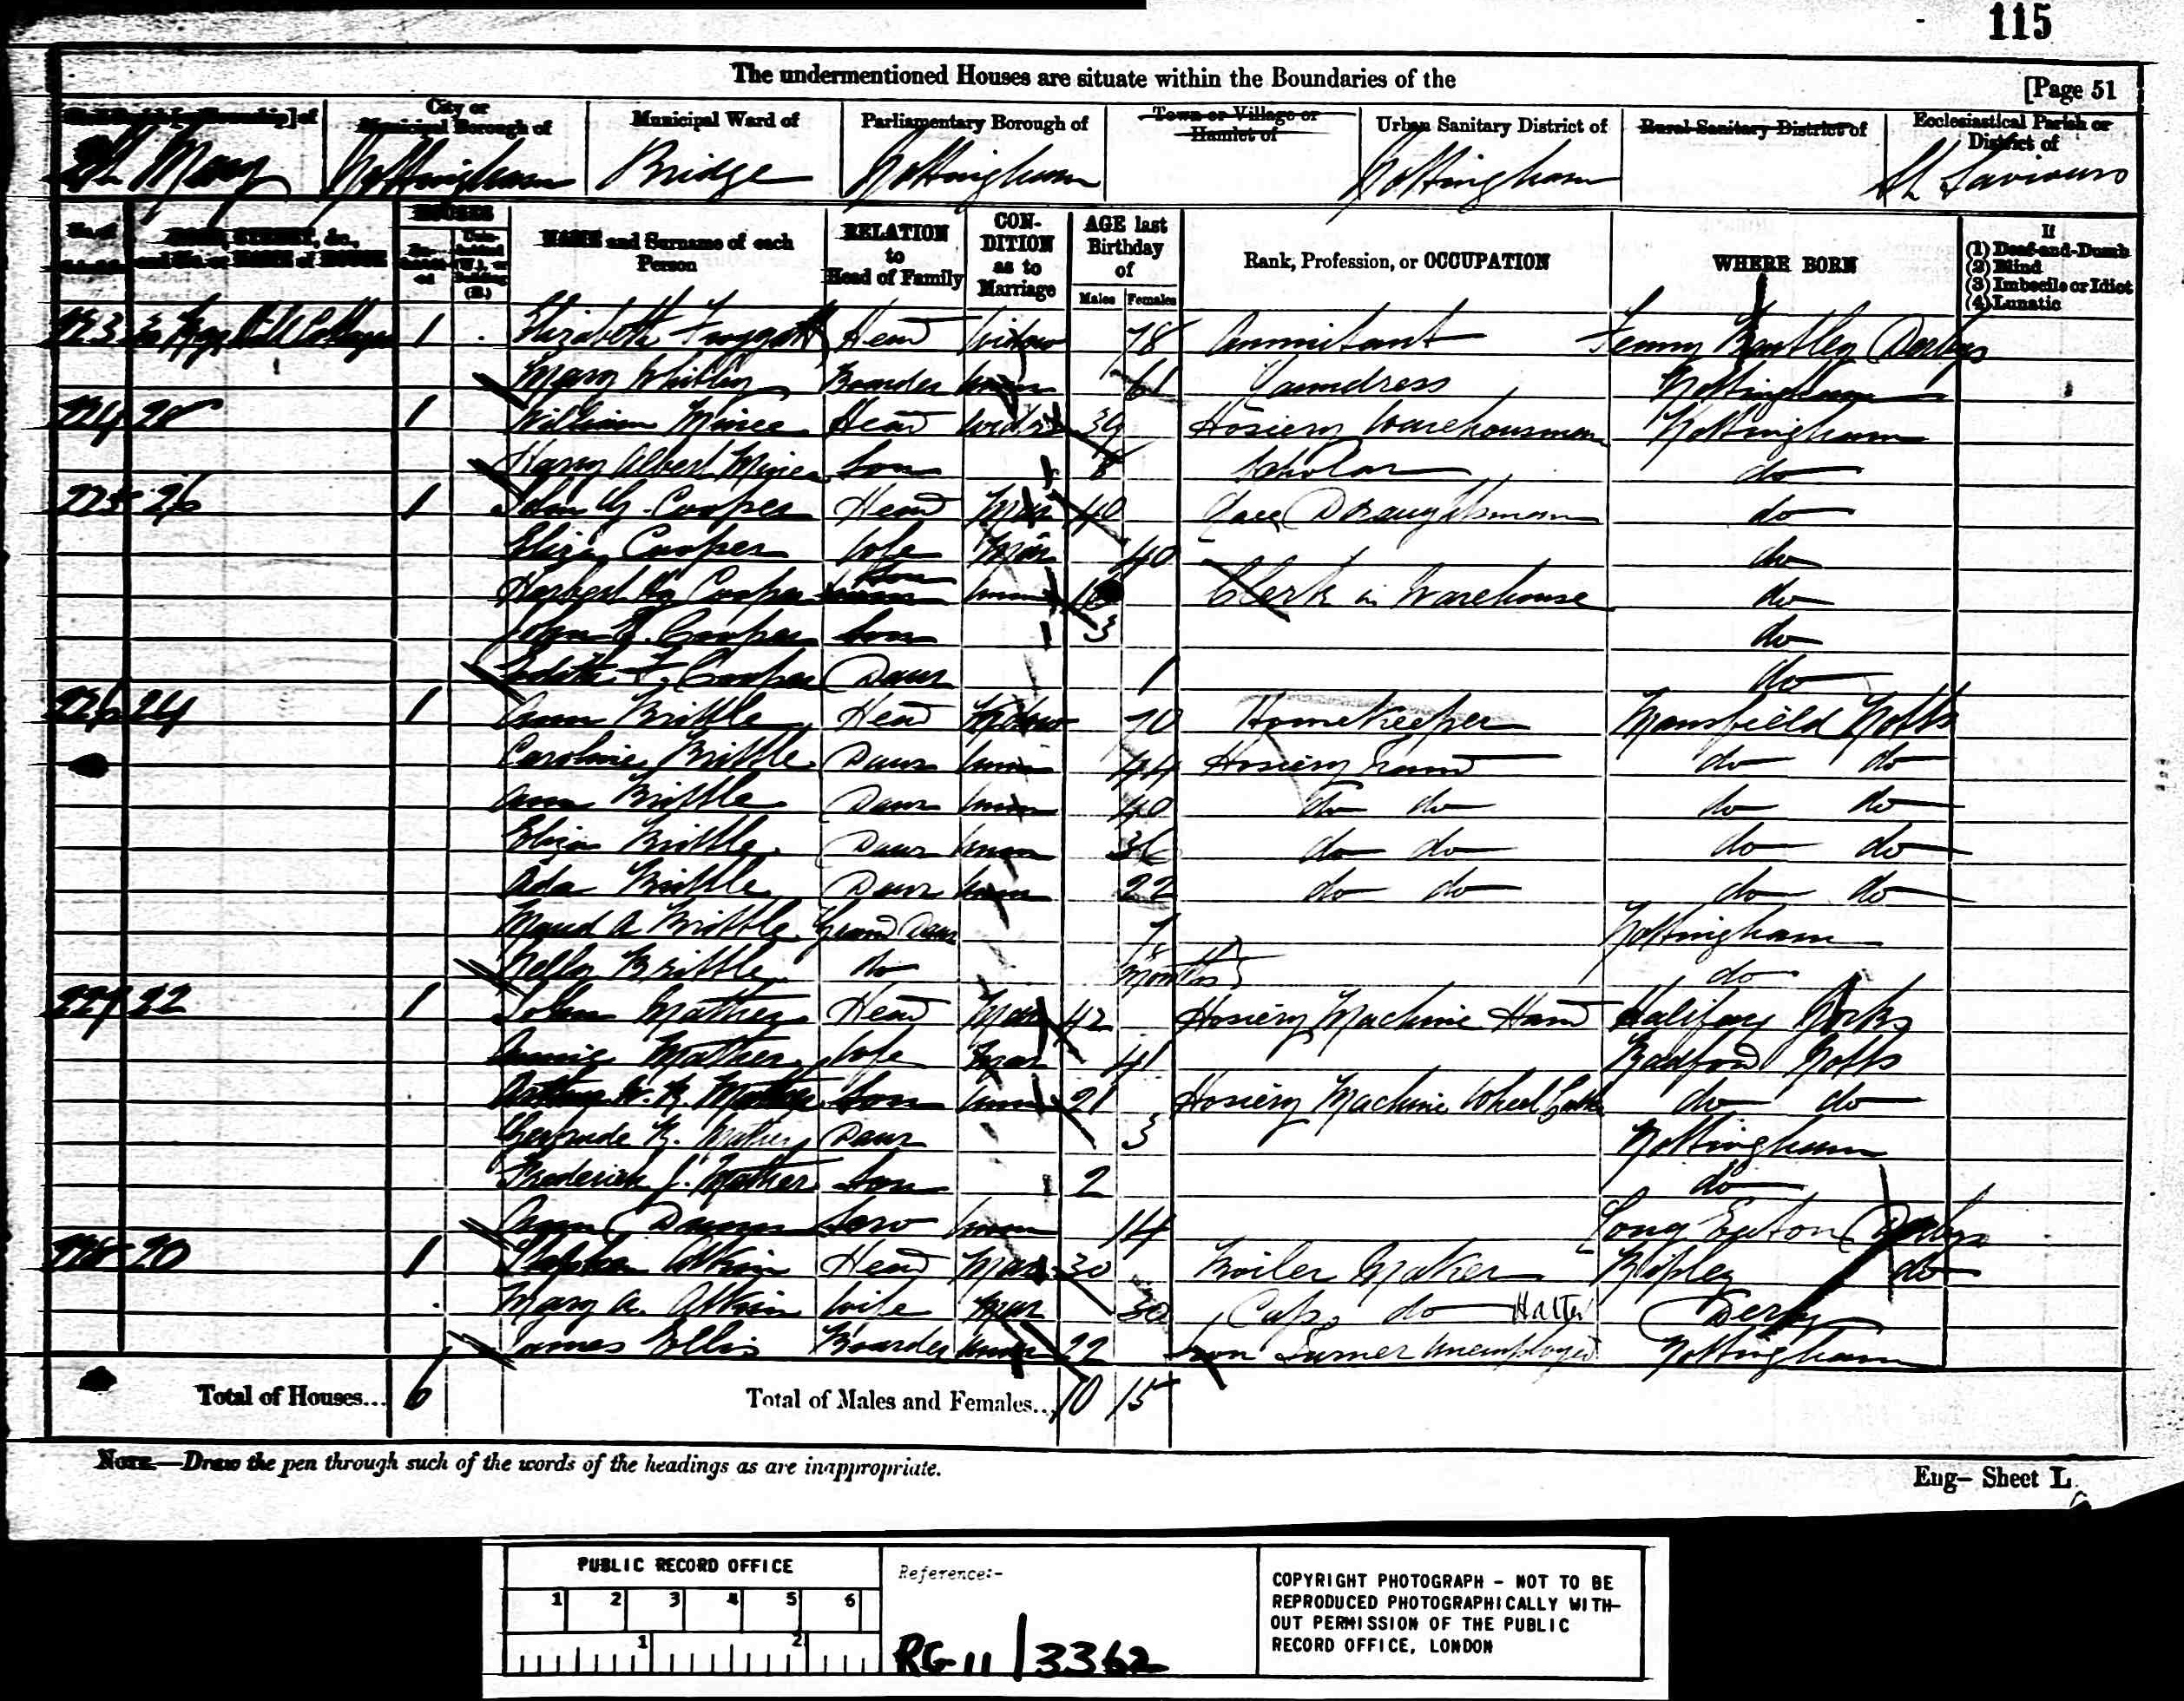 115
The undermentioned Houses are situate within the Boundaries of the
[Page 51
City or Municipal Borough of
Municipal Ward of
Parliamentary Borough of
Town or Village or Hamlet of
Urban Sanitary District of
Rural Sanitary District of
Ecclesiastical Parish or District of
St Mary Nottingham Bridge Nottingham Nottingham St Saviours
HOUSES
NAME and Surname of each Person
RELATION to Head of Family
CON-DITION as to Marriage
AGE last Birthday of
Males Females
Rank, Profession, or OCCUPATION
WHERE BORN
If
(1) Deaf-and-Dumb
(2) Blind
(3) Imbecile or Idiot
(4) Lunatic
223 30 Cottages 1 Elizabeth Froggatt Head Widow 78 Annuitant Fenny Bentley Derbys
Mary Whitley Boarder Unm 61 Laundress Nottingham
224 28 1 William Minee Head Widr 39 Hosiery Warehouseman Nottingham
Harry Albert Minee Son 8 Scholar do
225 26 1 John Cooper Head Mar 40 Lace Draughtsman do
Eliza Cooper Wife Mar 40 do
Herbert Hy Cooper Son Unm Clerk in Warehouse do
John Cooper Son 3 do
Edith F. Cooper Daur 1 do
226 24 1 Ann Brittle Head Widow 70 Homekeeper Mansfield Notts
Caroline Brittle Daur Unm 44 Hosiery Hand do do
Ann Brittle Daur Unm 40 do do do do
Eliza Brittle Daur Unm 36 do do do do
Ada Brittle Daur Unm 22 do do do do
Maud A Brittle Grand Daur 7 Nottingham
Nelly Brittle do 8 months do
227 22 1 John Mather Head Mar 42 Hosiery Machine Hand Halifax Yorks
Annie Mather Wife Mar 41 Radford Notts
Arthur W. R. Mather Son Unm 21 Hosiery Machine Wheel Cutter do do
Gertrude R. Mather Daur 3 Nottingham
Frederick J. Mather Son 2 do
Ann Serv Unm 14 Long Eaton Derbys
228 20 1 Stephen Atkin Head Mar 30 Boiler Maker Ripley do
Mary A. Atkin Wife Mar 30 Cap do Hatter Derby
James Ellis Boarder Unm 22 Iron Turner Unemployed Nottingham
Total of Houses... 6
Total of Males and Females... 10 15
NOTE.—Draw the pen through such of the words of the headings as are inappropriate.
Eng— Sheet L.
PUBLIC RECORD OFFICE
1 2 3 4 5 6
1 2
Reference:-
RG 11 / 3362
COPYRIGHT PHOTOGRAPH - NOT TO BE
REPRODUCED PHOTOGRAPHICALLY WITH-
OUT PERMISSION OF THE PUBLIC
RECORD OFFICE, LONDON